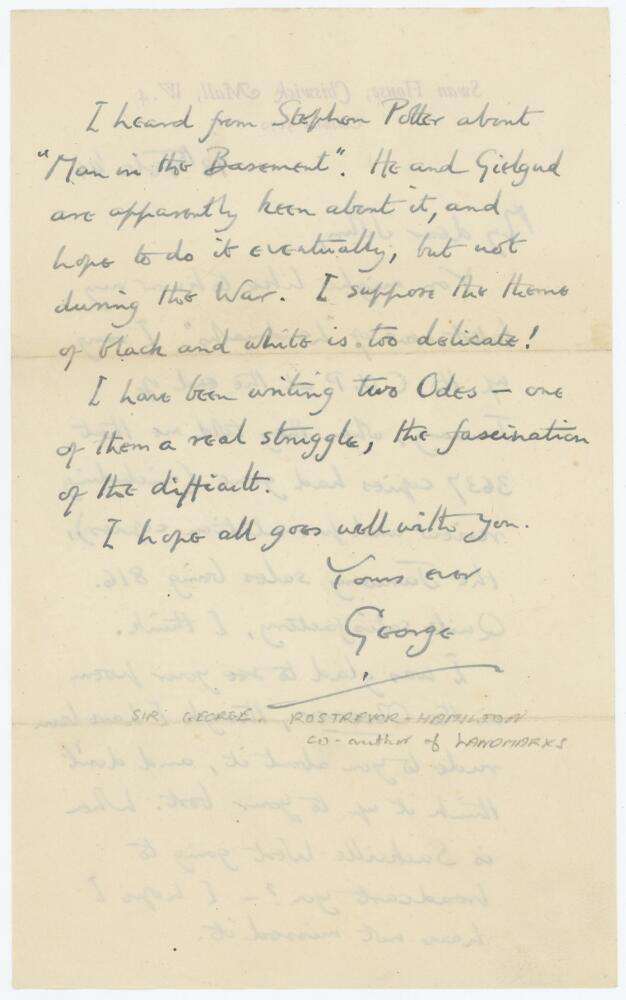 I heard from Stephen Potter about
"Man in the Basement". He and Gielgud
are apparently keen about it, and
hope to do it eventually, but not
during the War. I suppose the theme
of black and white is too delicate!
I have been writing two Odes — one
of them a real struggle, the fascination
of the difficult.
I hope all goes well with you.
Yours ever
George
SIR GEORGE. ROSTREVOR-HAMILTON
co-author of LANDMARKS